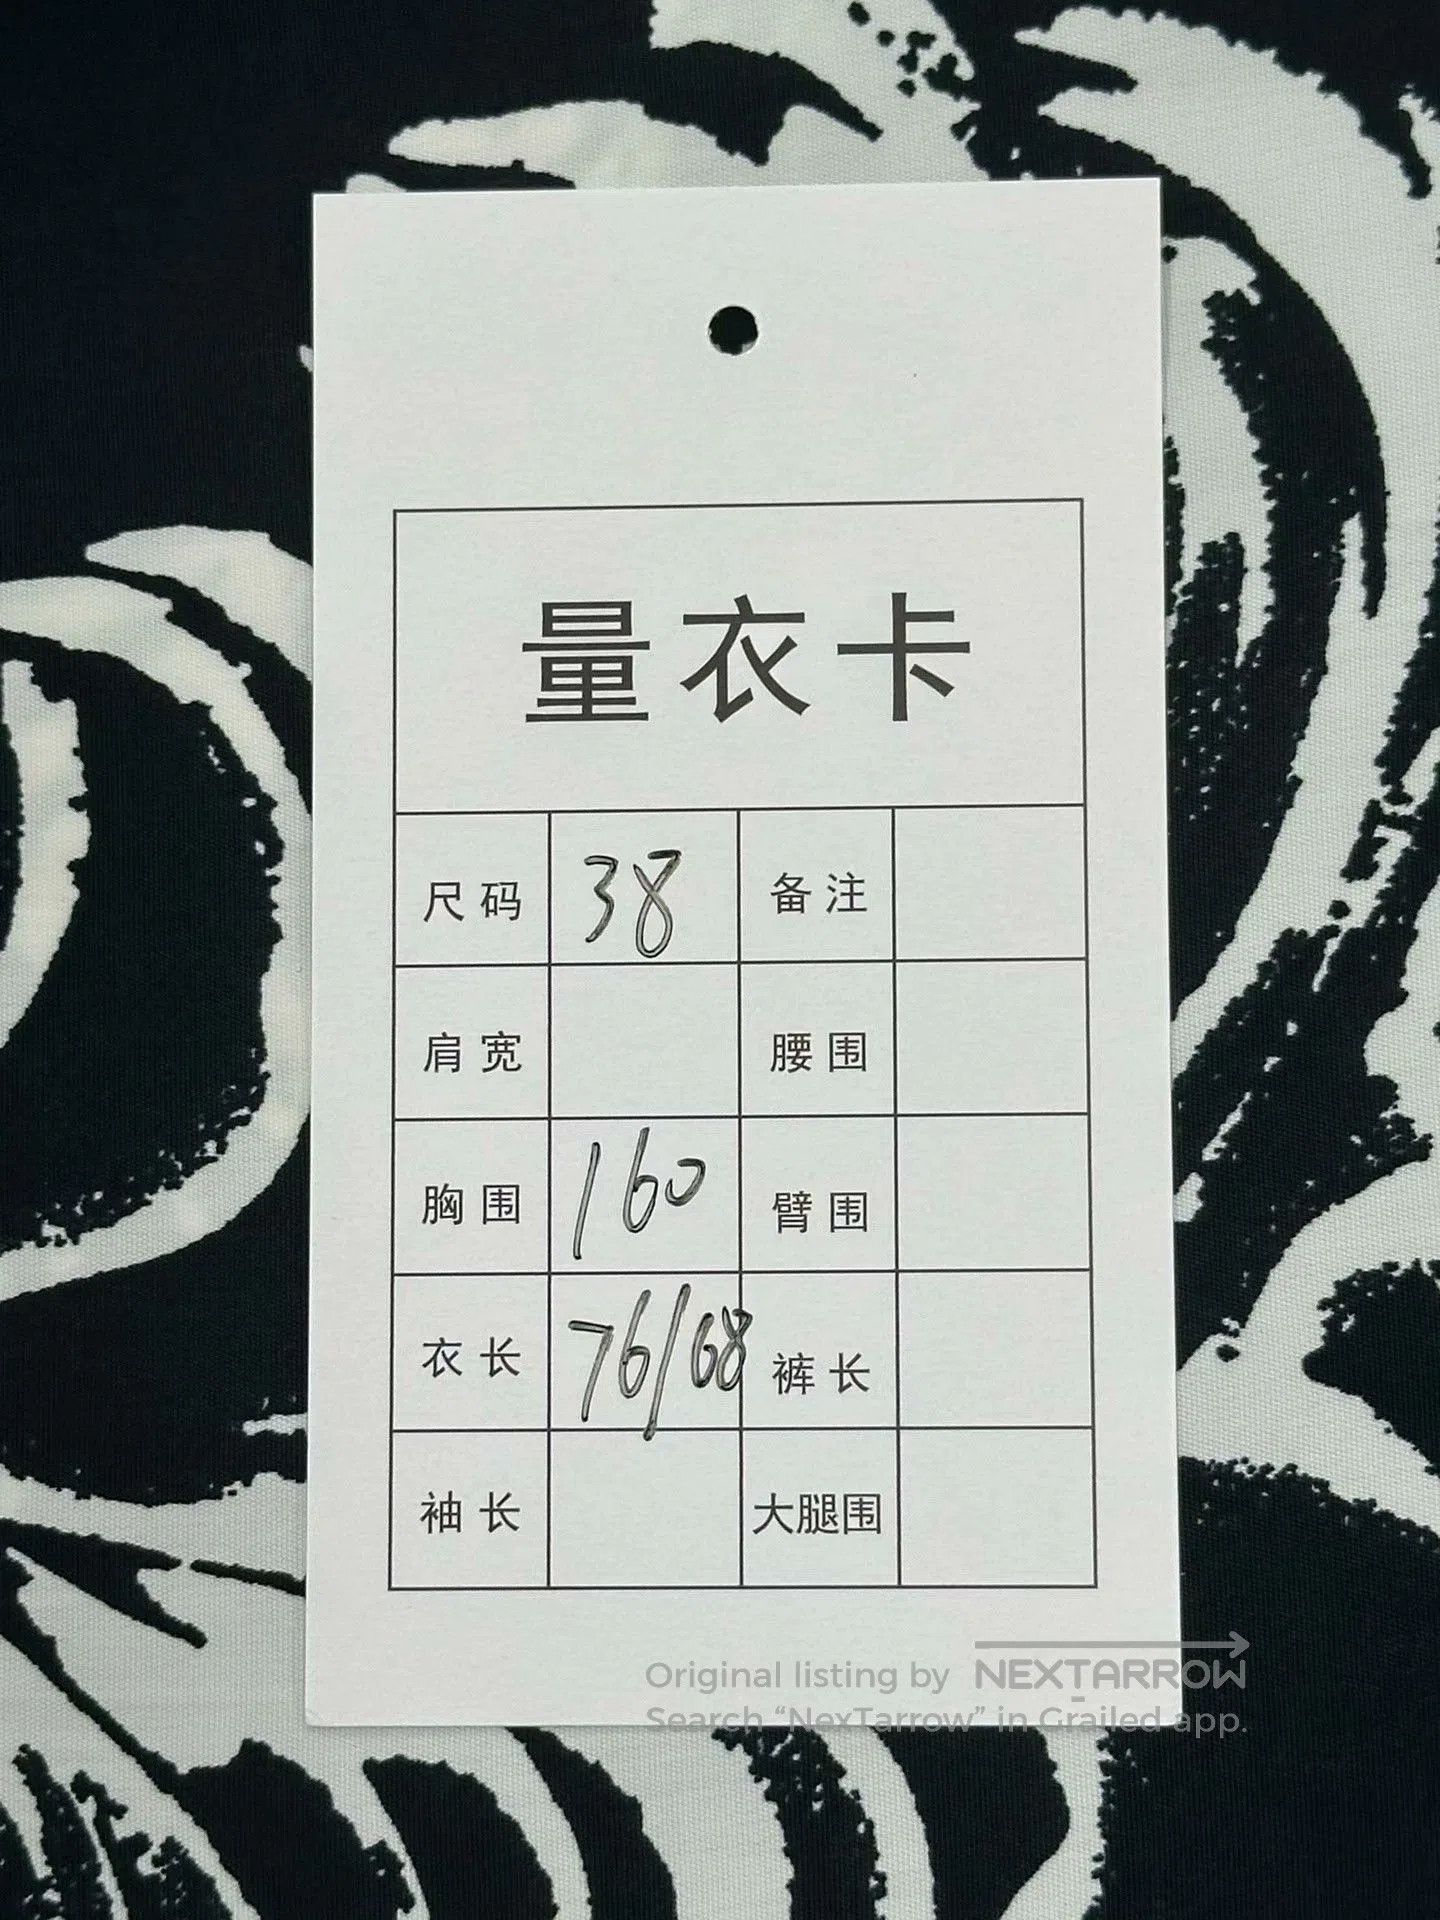 量衣卡
尺码 38 备注
肩宽 腰围
胸围 160 臂围
衣长 76/68 裤长
袖长 大腿围
Original listing by NEXTARROW
Search “NexTarrow” in Grailed app.